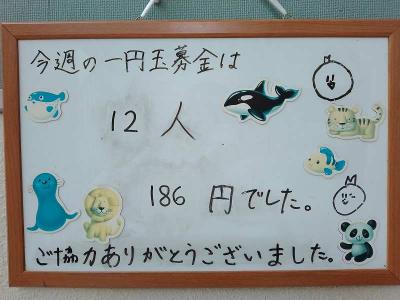 今週の一円玉募金は
12人
186円でした。
ご協力ありがとうございました。